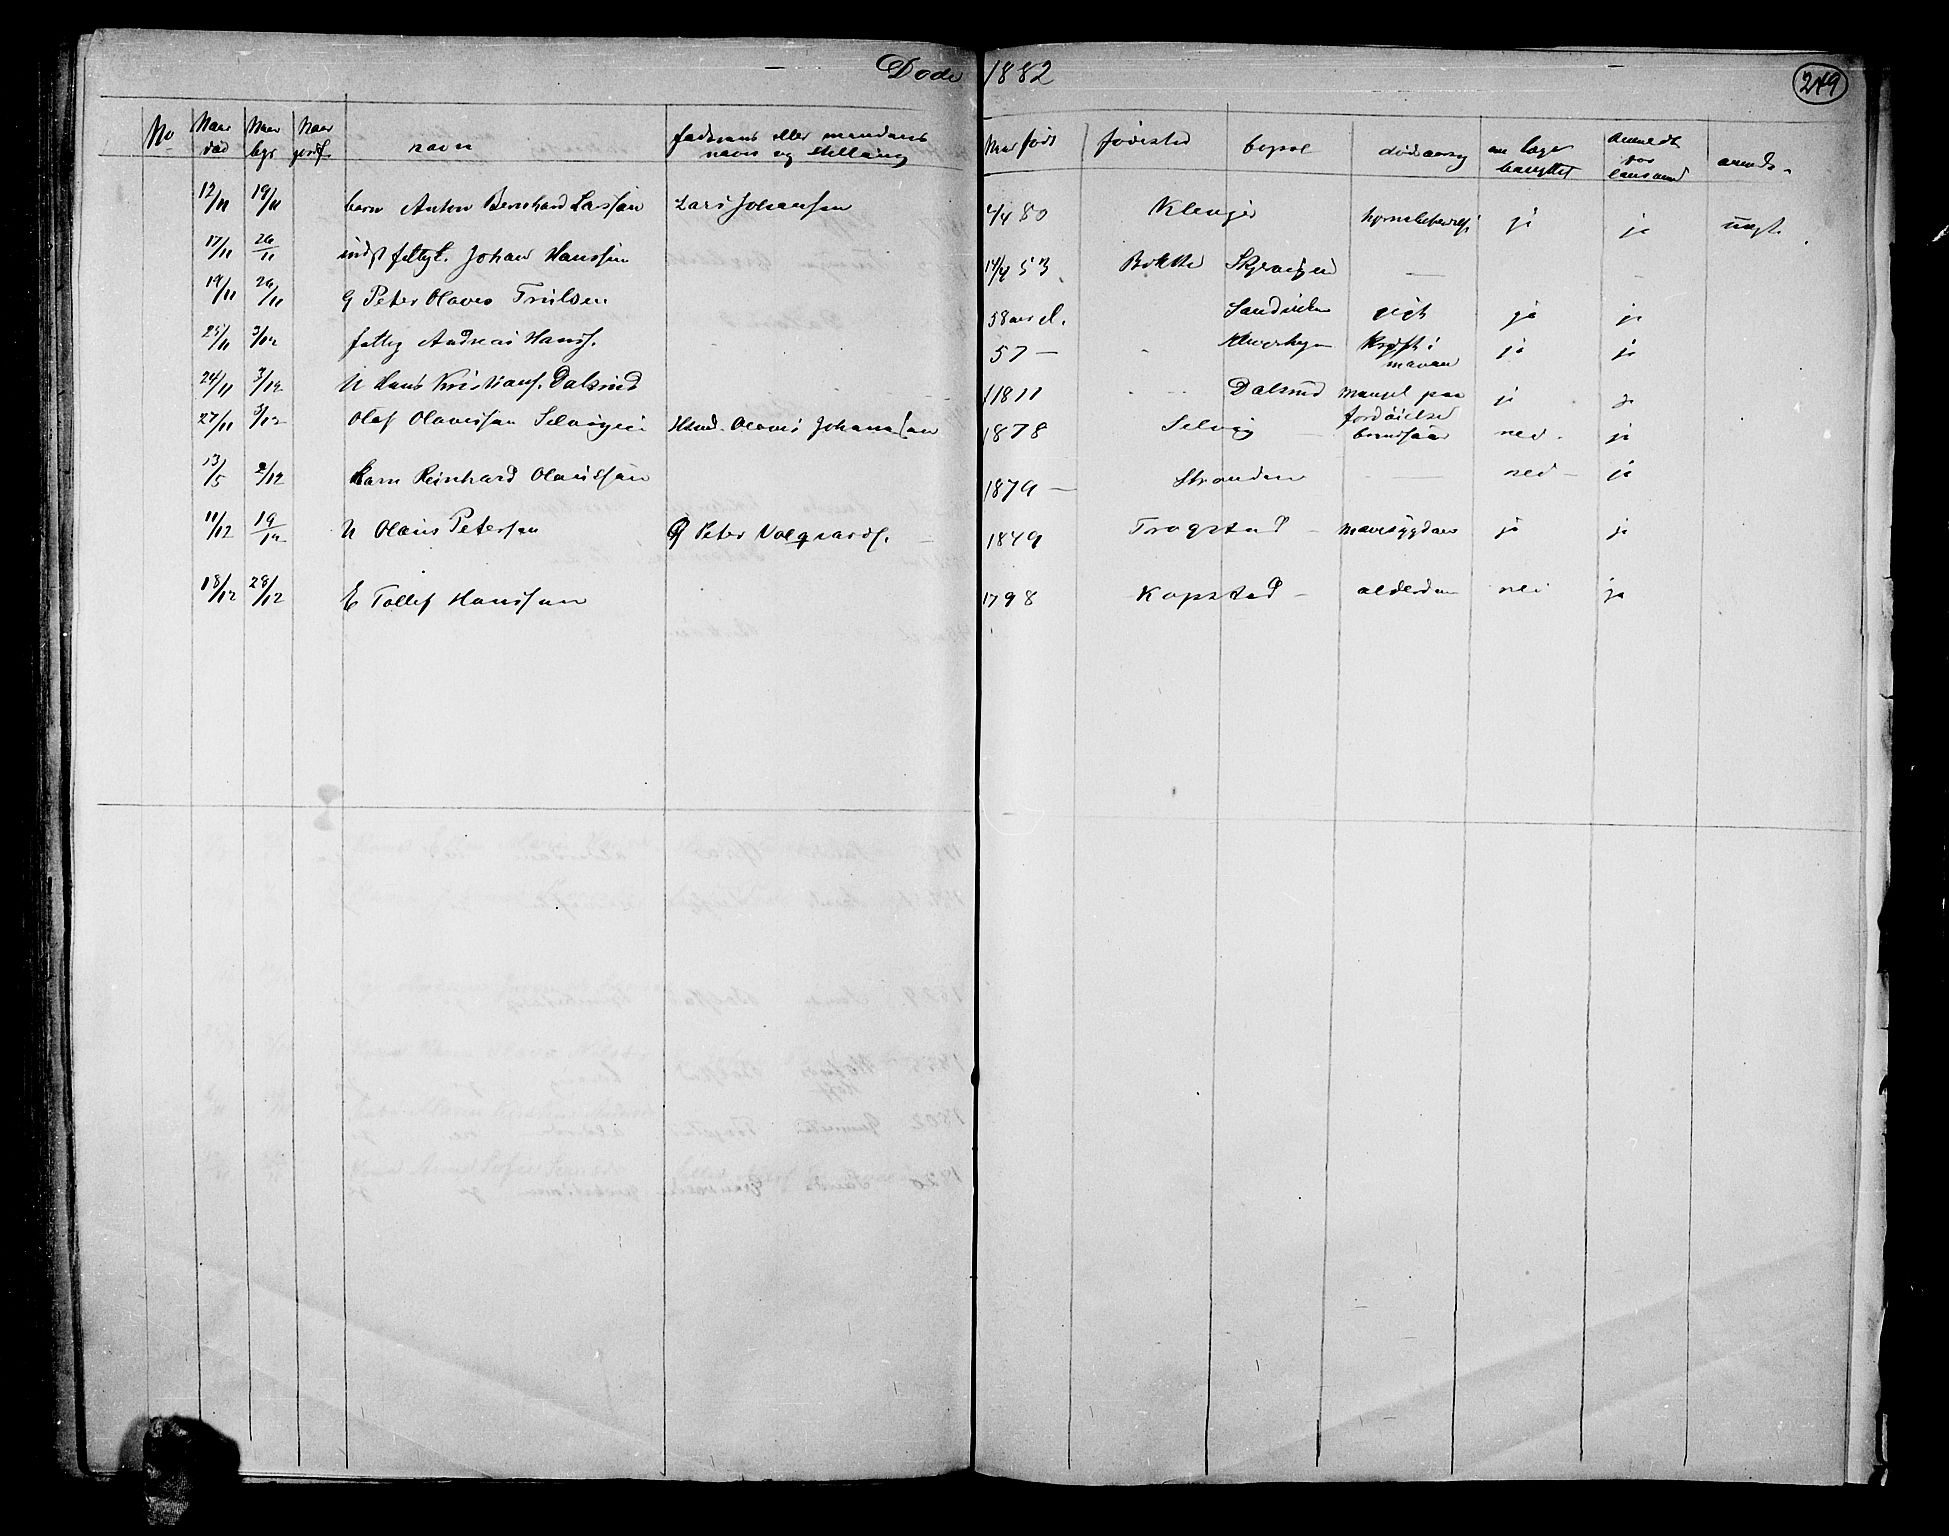 Døde 1882
249
No Naar død Naar begr Naar jordf. navn fadrens eller mandens navn og stilling Naar født fødested bopæl dødsaarsag om læge benyttet Anmeldt for lensmand anmdr.
12/11 19/11 barn Anton Bernhard Larssøn Lars Johansen 4/4 80 Klevjer ja ja
17/11 26/11 indst fattigl. Johan Hanssen 14/4 53 Bakke
19/11 26/11 G Peter Olaves Trulsen 58 aar el. Sandviken gigt ja ja
25/11 3/12 fattig Andreas Hanss. 57 – Kræft i maven ja ja
24/11 3/12 U Hans Kristians. Dalsrud 11811 Dalsrud mangel paa fordøielse ja ja
27/11 3/12 Olaf Olavessøn Selvigeie Hmd. Olaves Johanessøn 1878 Selvig – brandsaar nei – ja
13/5 2/12 Barn Reinhard Olavissøn 1879 – Stranden – nei – ja
11/12 19/12 U Olaus Petersøn G Peter Volqvards. – 1849 Trogstad – mavesygdom ja ja
18/12 28/12 E Tollef Hanssøn 1798 Kopstad – alderdom nei ja